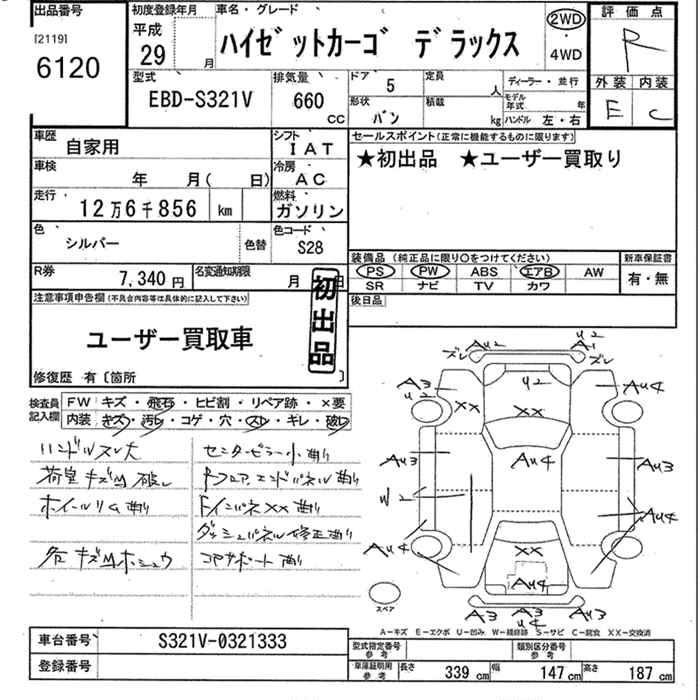 出品番号 初度登録年月 車名・グレード 評価点
[2119] 平成 2WD R
6120 29 月 ハイゼットカーゴ デラックス 4WD
型式 排気量 ドア 5 定員 人 ディーラー・並行 外装 内装
EBD-S321V 660 CC 形状 バン 積載 kg モデル年式 年 E C
ハンドル 左・右
車歴 自家用 シフト IAT セールスポイント(正常に機能するものに限ります)
車検 年 月( 日) 冷房 AC ★初出品 ★ユーザー買取り
走行 12万6千856 km 燃料 ガソリン
色 シルバー 色替 色コード S28 装備品(純正品に限り○をつけてください) 新車保証書
PS PW ABS エアB AW 有・無
SR ナビ TV カワ
R券 7,340円 名変通知期限 月 日 後日品
注意事項申告欄(不具合内容等は具体的に記入して下さい)
初出品
ユーザー買取車
修復歴 有〔箇所 〕
検査員記入欄 FW キズ・飛石・ヒビ割・リペア跡・×要
内装 キズ・汚レ・コゲ・穴・スレ・ギレ・破レ
ハンドルスレ大 センターピラー小曲り
荷室キズM破レ Rフロア、エンドパネル曲り
ホイールリム曲り
ダッシュパネル修正曲り
コアサポート曲り
ズレ AU2 U2 A1 ズレ
A3 U2 XX U2 XX AU4
AU3 AU4 AU3
W2 AU4
AU4 XX AU4
A3 A3 U4 A3
スペア
A-キズ E-エクボ U-凹み W-補修跡 S-サビ C-腐食 XX-交換済
車台番号 S321V-0321333 型式指定番号 参考 類別区分番号 参考
登録番号 車庫証明用 参考 長さ 339 cm 幅 147 cm 高さ 187 cm